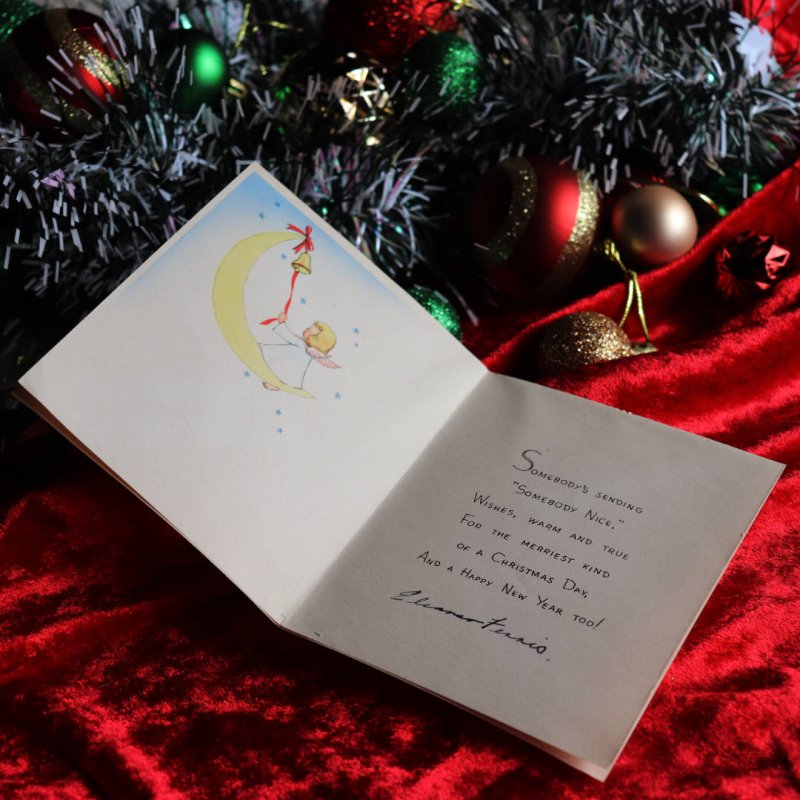 SOMEBODY'S SENDING
"SOMEBODY NICE,"
WISHES, WARM AND TRUE
FOR THE MERRIEST KIND
OF A CHRISTMAS DAY,
AND A HAPPY NEW YEAR TOO!
Eleanor Fennis.